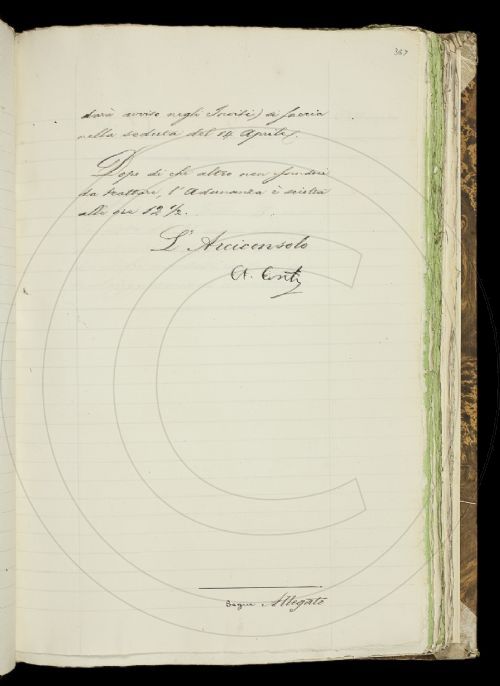 367
darà avviso negli Inviti) si faccia
nella seduta del 14 Aprile.
Dopo di che altro non essendovi
da trattare, l'Adunanza è sciolta
alle ore 12 1/2.
L'Arciconsolo
A. Conti
Segue Allegato